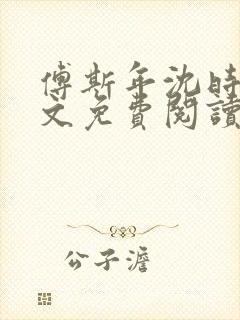 傅斯年沈時
文免費閱讀
公子澹